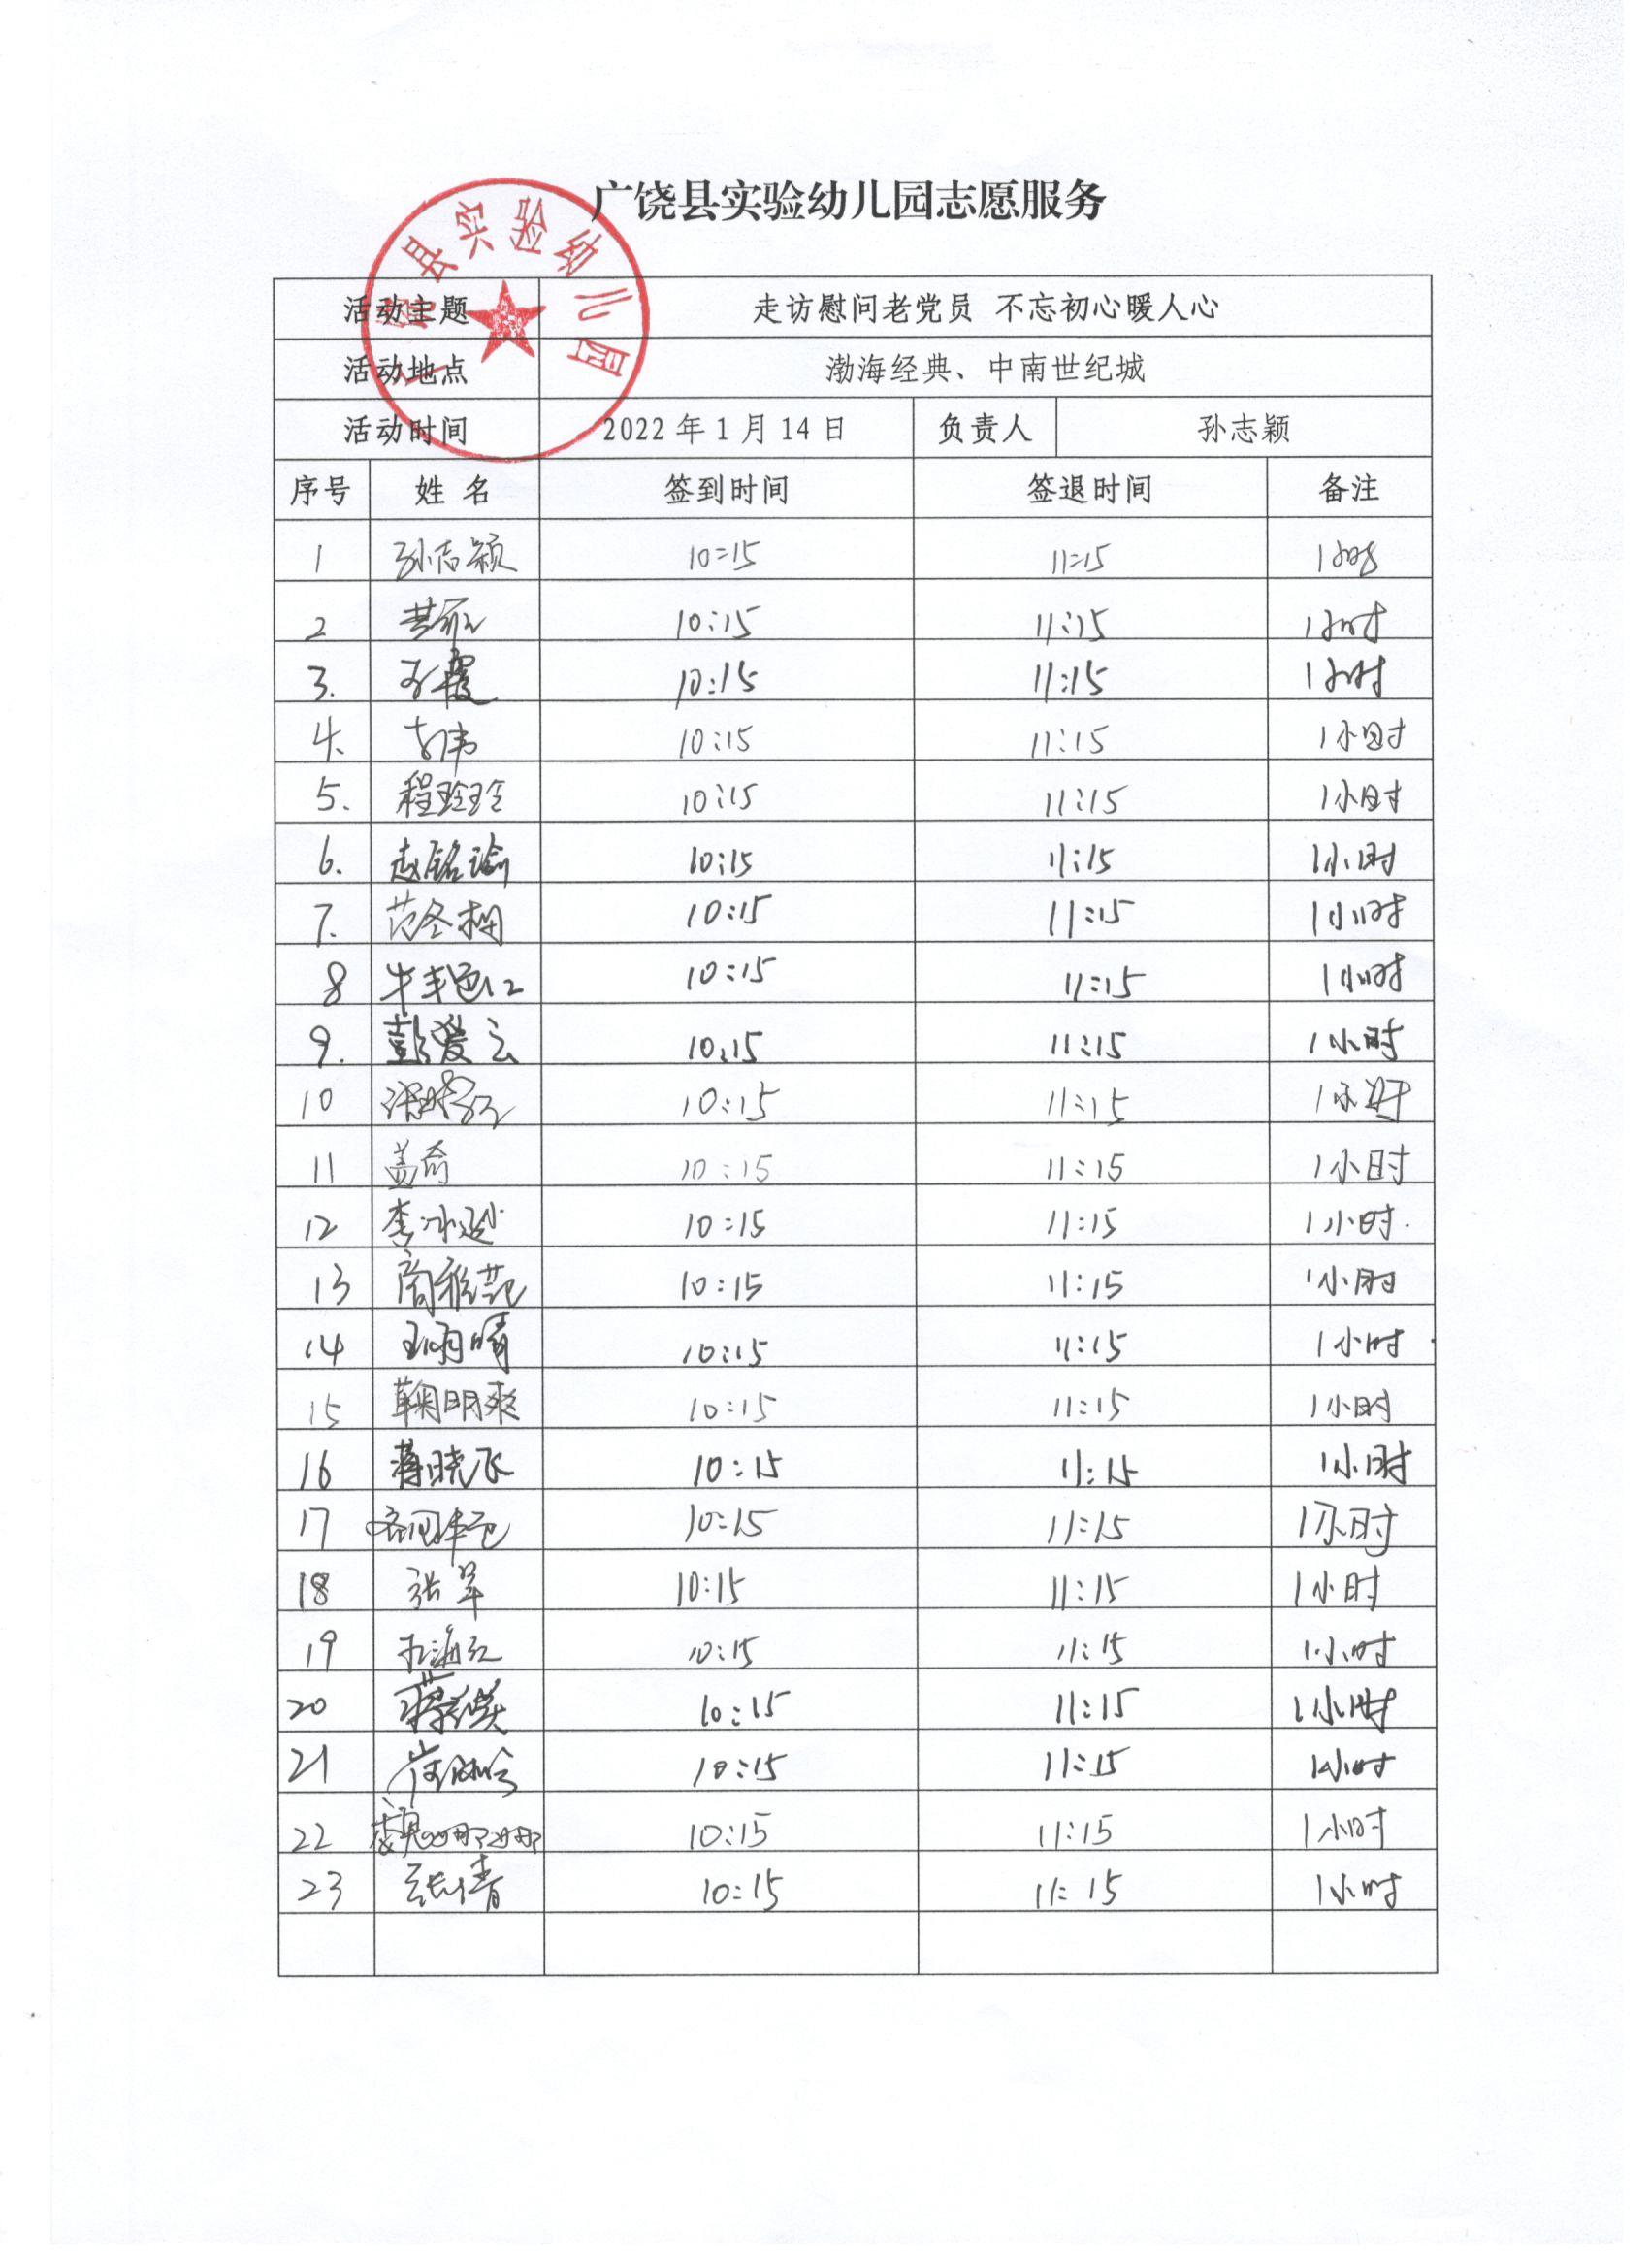 广饶县实验幼儿园志愿服务
广饶县实验幼儿园
活动主题 走访慰问老党员 不忘初心暖人心
活动地点 渤海经典、中南世纪城
活动时间 2022年1月14日 负责人 孙志颖
序号 姓名 签到时间 签退时间 备注
1 孙志颖 10:15 11:15 1小时
2 10:15 11:15 1小时
3. 10:15 11:15 1小时
4. 10:15 11:15 1小时
5. 程玲玲 10:15 11:15 1小时
6. 赵铭瑜 10:15 11:15 1小时
7. 范冬梅 10:15 11:15 1小时
8 10:15 11:15 1小时
9. 彭爱云 10:15 11:15 1小时
10 10:15 11:15 1小时
11 盖奇 10:15 11:15 1小时
12 李冰逊 10:15 11:15 1小时.
13 商雅范 10:15 11:15 1小时
14 10:15 11:15 1小时
15 鞠明爽 10:15 11:15 1小时
16 蒋晓飞 10:15 11:15 1小时
17 10:15 11:15 1小时
18 张翠 10:15 11:15 1小时
19 10:15 11:15 1小时
20 10:15 11:15 1小时
21 10:15 11:15 1小时
22 10:15 11:15 1小时
23 张倩 10:15 11:15 1小时